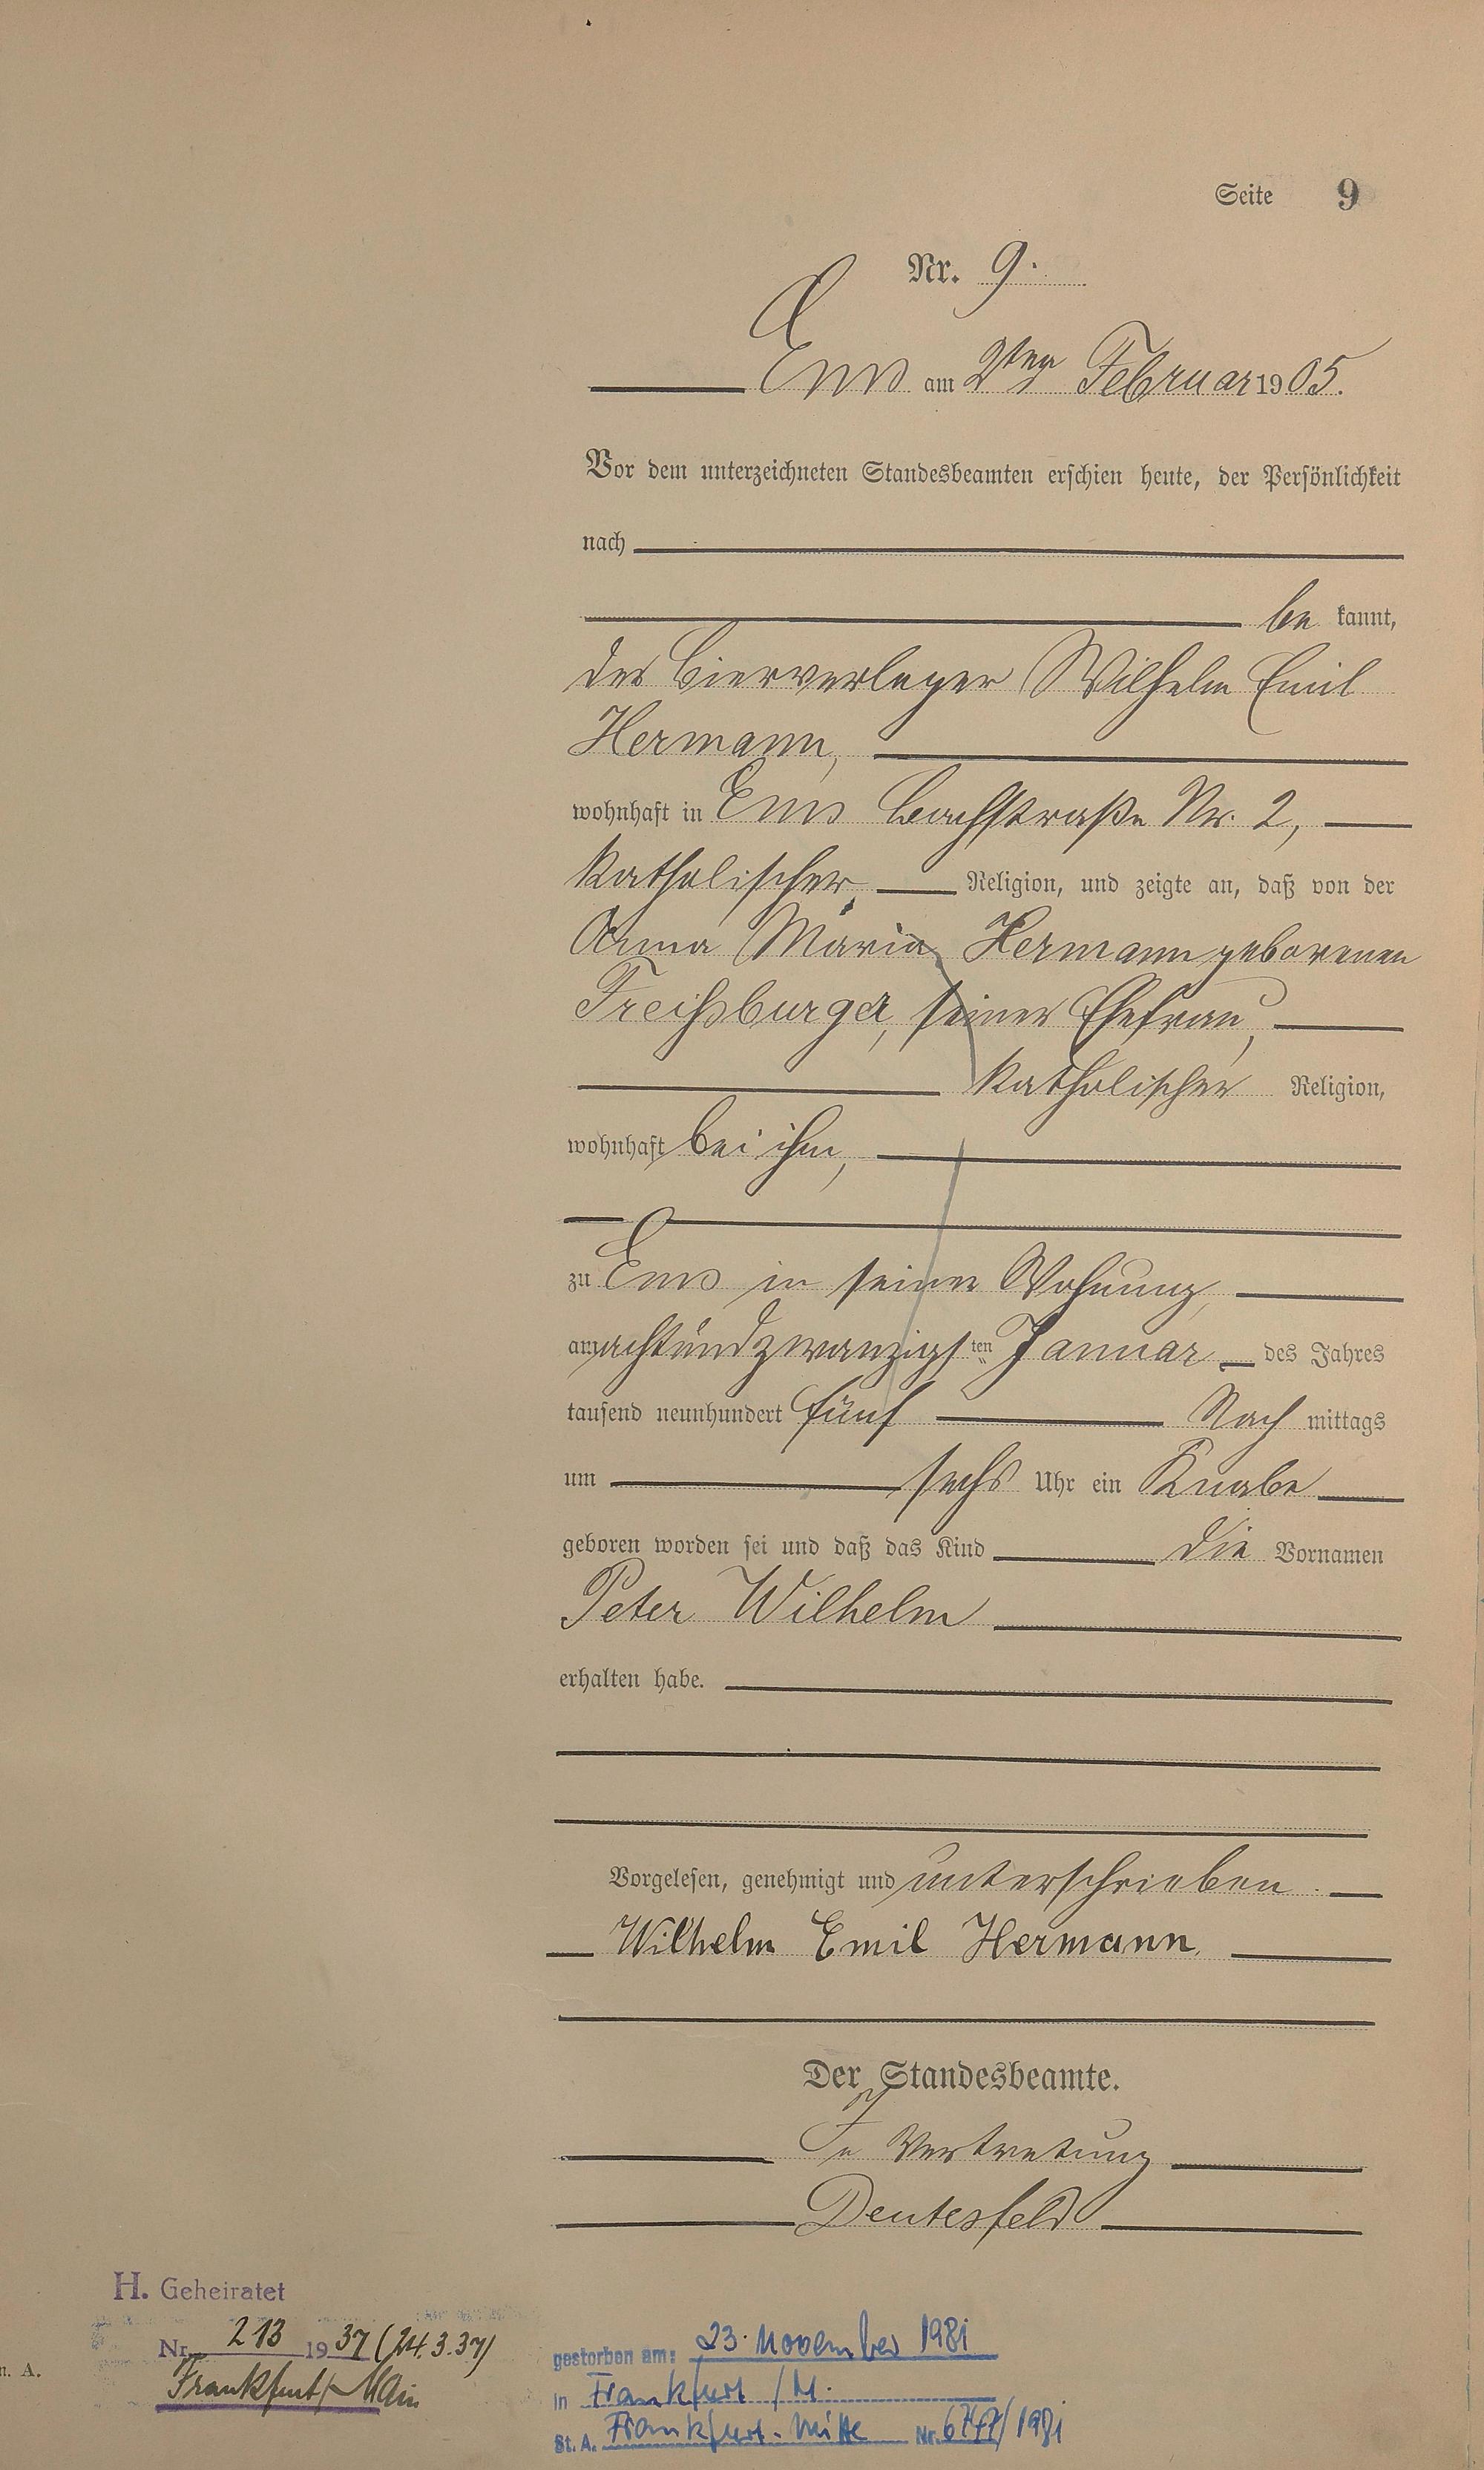 Seite 9
Nr. 9.
Ems am 2ten Februar 1905.
Vor dem unterzeichneten Standesbeamten erschien heute, der Persönlichkeit
nach
be kannt,
der Bierverleger Wilhelm Emil
Hermann,
wohnhaft in Ems Bachstraße Nr. 2,
katholischer Religion, und zeigte an, daß von der
Anna Maria Hermann geborenen
Freißburger, seiner Ehefrau,
katholischer Religion,
wohnhaft bei ihm,
zu Ems in seiner Wohnung,
am achtundzwanzigsten Januar des Jahres
tausend neunhundert fünf Nach mittags
um sechs Uhr ein Knabe
geboren worden sei und daß das Kind die Vornamen
Peter Wilhelm
erhalten habe.
Vorgelesen, genehmigt und unterschrieben.
Wilhelm Emil Hermann.
Der Standesbeamte.
In Vertretung
Deutesfeld
H. Geheiratet
Nr. 213 1937 (24.3.37)
Frankfurt/Main
n. A.
gestorben am: 23. November 1981
in Frankfurt /M.
St. A. Frankfurt-Mitte Nr. /1981